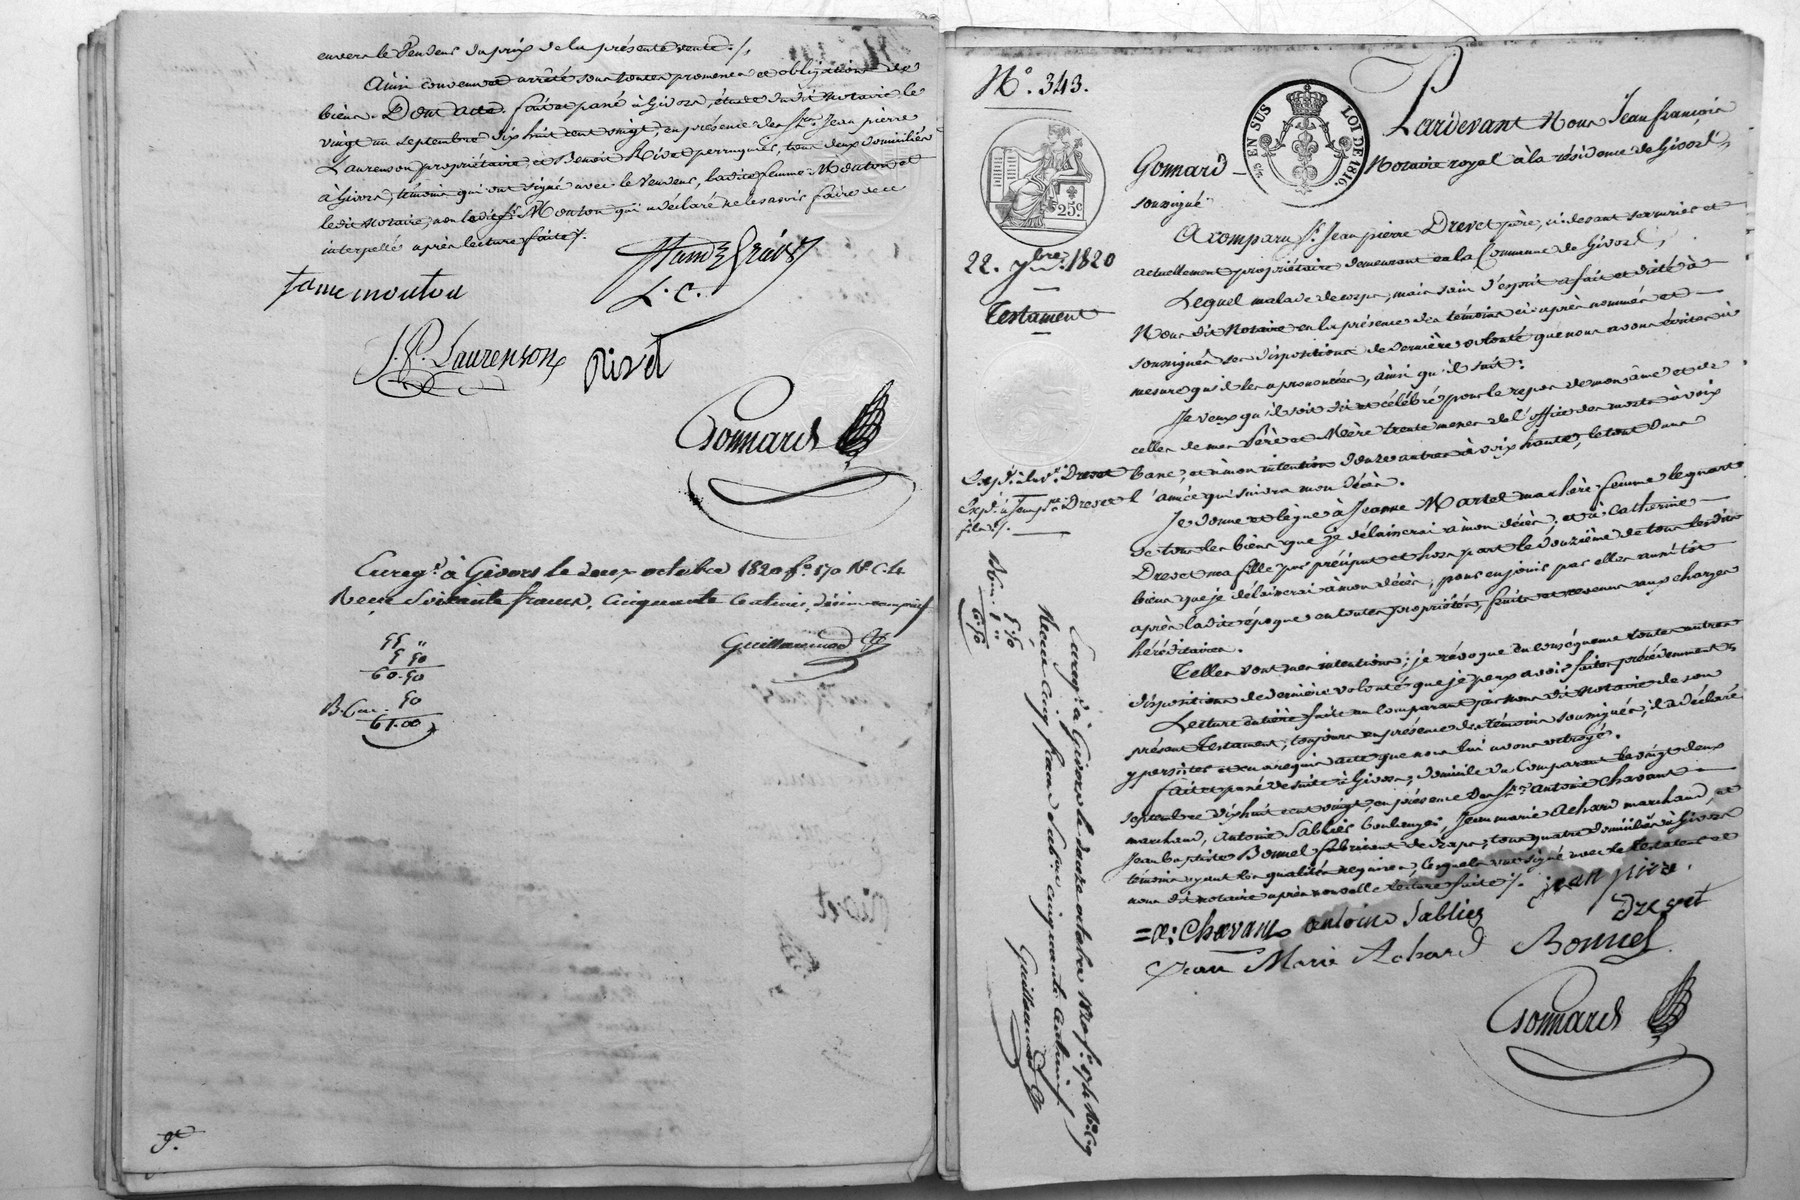 envers le Vendeur du prix de la présente vente ./.
Ainsi convenu et arrêté sous toutes promesses et obligations de
biens. Dont acte. fait et passé à Givors, étude dudit Notaire, le
vingt un septembre dix huit cent vingt, en présence des Srs. Jean pierre
Laurenson propriétaire, et Benoit Rivet perruquier, tous deux domiciliés
à Givors, témoins qui ont signé avec le Vendeur, ladite femme Mouton et
ledit Notaire, non ledit Sr. Mouton qui a déclaré ne le savoir faire de ce
interpellé après lecture faite ./.
fame mouton
L. C.
J. P. Laurenson Rivet
Gonnard
Enregé. à Givors le deux octobre 1820 fo. 170 Ro. C. 4
Reçu Soixante francs, Cinquante Centimes, décime compris
Guillaumod
55 "
5 50
60.50
50
61.00
No. 343.
EN SUS
LOI DE 1816.
25c.
22. 7bre. 1820
Testament
Expé. à la ve. Drevet
Expé. à Jean pre. Drevet
fils ./.
Pardevant Nous Jean françois
Gonnard Notaire royal à la résidence de Givors,
soussigné
A comparu Sr. Jean pierre Drevet père, ci devant serrurier et
actuellement propriétaire demeurant en la Commune de Givors,
Lequel malade de corps, mais sain d'esprit a fait et dicté à
Nous dit Notaire en la présence des témoins ci après nommés et
soussignés ses dispositions de dernière volonté que nous avons écrites à
mesure qu'il les a prononcées, ainsi qu'il suit:
Je veux qu'il soit dit et célébré pour le repos de mon âme et de
celles de mes Père et Mère trente messes de l'office des morts à voix
basse, et à mon intention douze autres à voix haute, le tout dans
l'année qui suivra mon décès.
Je donne et lègue à Jeanne Martel ma chère femme le quart
de tous les biens que je délaisserai à mon décès, et à Catherine
Drevet ma fille par préciput et hors part le douzième de tous lesdits
biens que je délaisserai à mon décès, pour en jouir par elles aussitôt
après ladite époque en toutes propriétés, fruits et revenus aux charges
héréditaires.
Telles sont mes intentions; je révoque en conséquence toutes autres
dispositions de dernière volonté que je peux avoir faites précédemment
Lecture entière faite au Comparant par nous dit Notaire de son
présent Testament, toujours en présence des témoins soussignés, il a déclaré
y persister et en a requis acte que nous lui avons octroyé.
fait et passé de suite à Givors, domicile du Comparant le vingt deux
septembre dix huit cent vingt, en présence des Srs. antoine Chavant
marchand, antoine Sablier boulanger, Jean marie Achard marchand, et
Jean Baptiste Bonnel fabricant de draps, tous quatre domiciliés à Givors
témoins ayant les qualités requises, lesquels ont signé avec le testateur et
nous dit notaire après nouvelle lecture faite ./.
jean pière
drevet
= a: Chavant antoine Sablier
Jean Marie Achard Bonnel
Gonnard
Enregé. à Givors le douze octobre 1820 fo. 174 Ro. C. 9
Reçu Cinq francs dixime cinquante centimes
Guillaumod
5 50
1 "
6.50